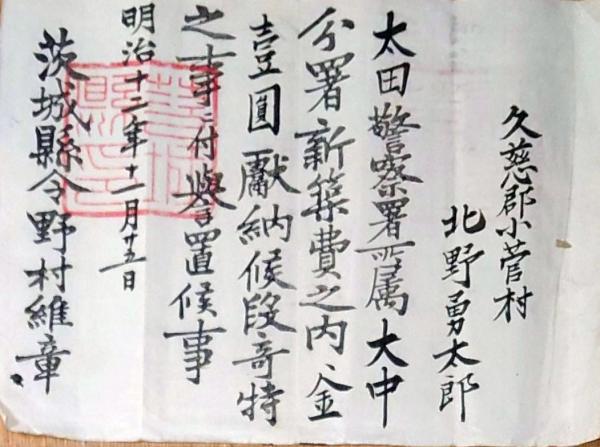 久慈郡小菅村
北野勇太郎
太田警察署所属大中
分署新築費之内ヘ金
壹圓獻納候段奇特
之事ニ付譽置候事
明治十二年十一月廿五日
茨城縣令野村維章